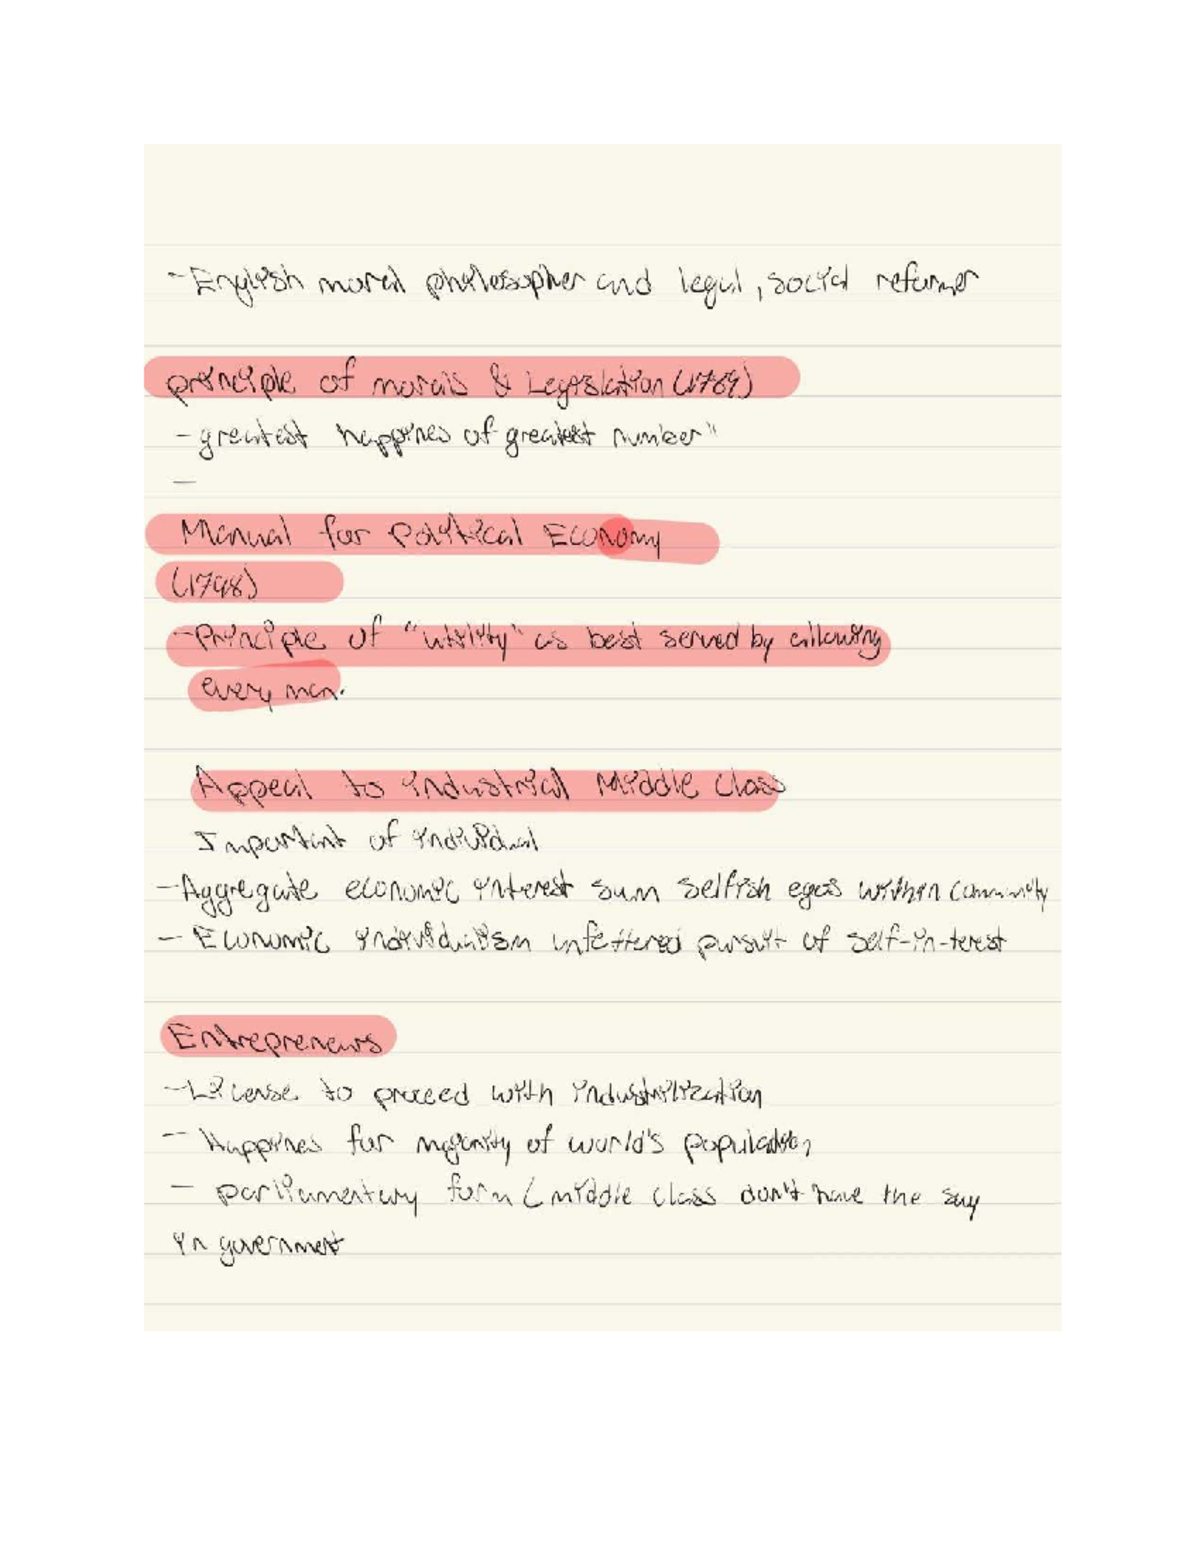 - English moral philosopher and legal, social reformer
principle of morals & Legislation (1789)
- greatest happines of greatest number"
—
Manual for Political Economy
(1798)
- Principle of "utility" as best served by allowing
every man.
Appeal to industrial Middle Class
Important of individual
- Aggregate economic interest sum selfish egos within community
- Economic individualism unfettered pursuit of self-in-terest
Entrepreneurs
- License to proceed with industrilization
- Happines for majority of world's population
- parliamentary form (middle class don't have the say
in government